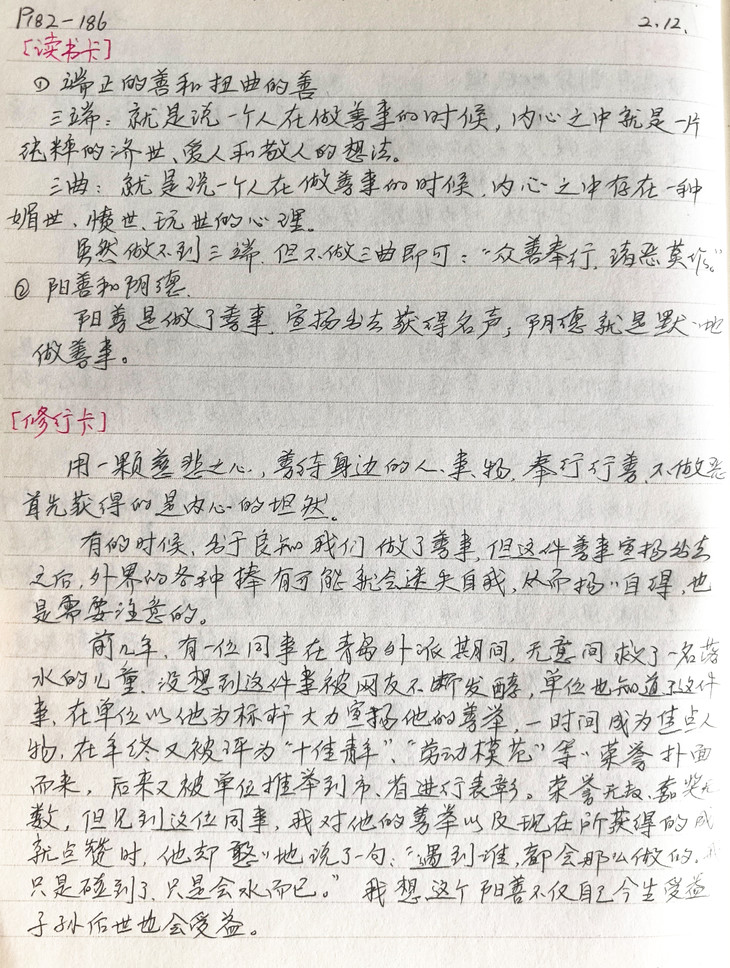 P182-186 2.12.
[读书卡]
① 端正的善和扭曲的善
三端：就是说一个人在做善事的时候，内心之中就是一片
纯粹的济世、爱人和敬人的想法。
三曲：就是说一个人在做善事的时候，内心之中存在一种
媚世、愤世、玩世的心理。
虽然做不到三端，但不做三曲即可："众善奉行，诸恶莫作。"
② 阳善和阴德.
阳善是做了善事，宣扬出去获得名声；阴德就是默〃地
做善事。
[修行卡]
用一颗慈悲之心，善待身边的人、事、物，奉行行善，不做恶
首先获得的是内心的坦然。
有的时候，出于良知我们做了善事，但这件善事宣扬出去
之后，外界的各种捧有可能就会迷失自我，从而扬〃自得，也
是需要注意的。
前几年，有一位同事在青岛外派期间，无意间救了一名落
水的儿童，没想到这件事被网友不断发酵，单位也知道了这件
事，在单位以他为标杆大力宣扬他的善举，一时间成为焦点人
物，在年终又被评为"十佳青年"、"劳动模范"等〃荣誉扑面
而来，后来又被单位推举到市、省进行表彰。荣誉无数、嘉奖无
数，但见到这位同事，我对他的善举以及现在所获得的成
就点赞时，他却憨〃地说了一句："遇到谁，都会那么做的，我
只是碰到了，只是会水而已。" 我想这个阳善不仅自己今生受益
子孙后世也会受益。